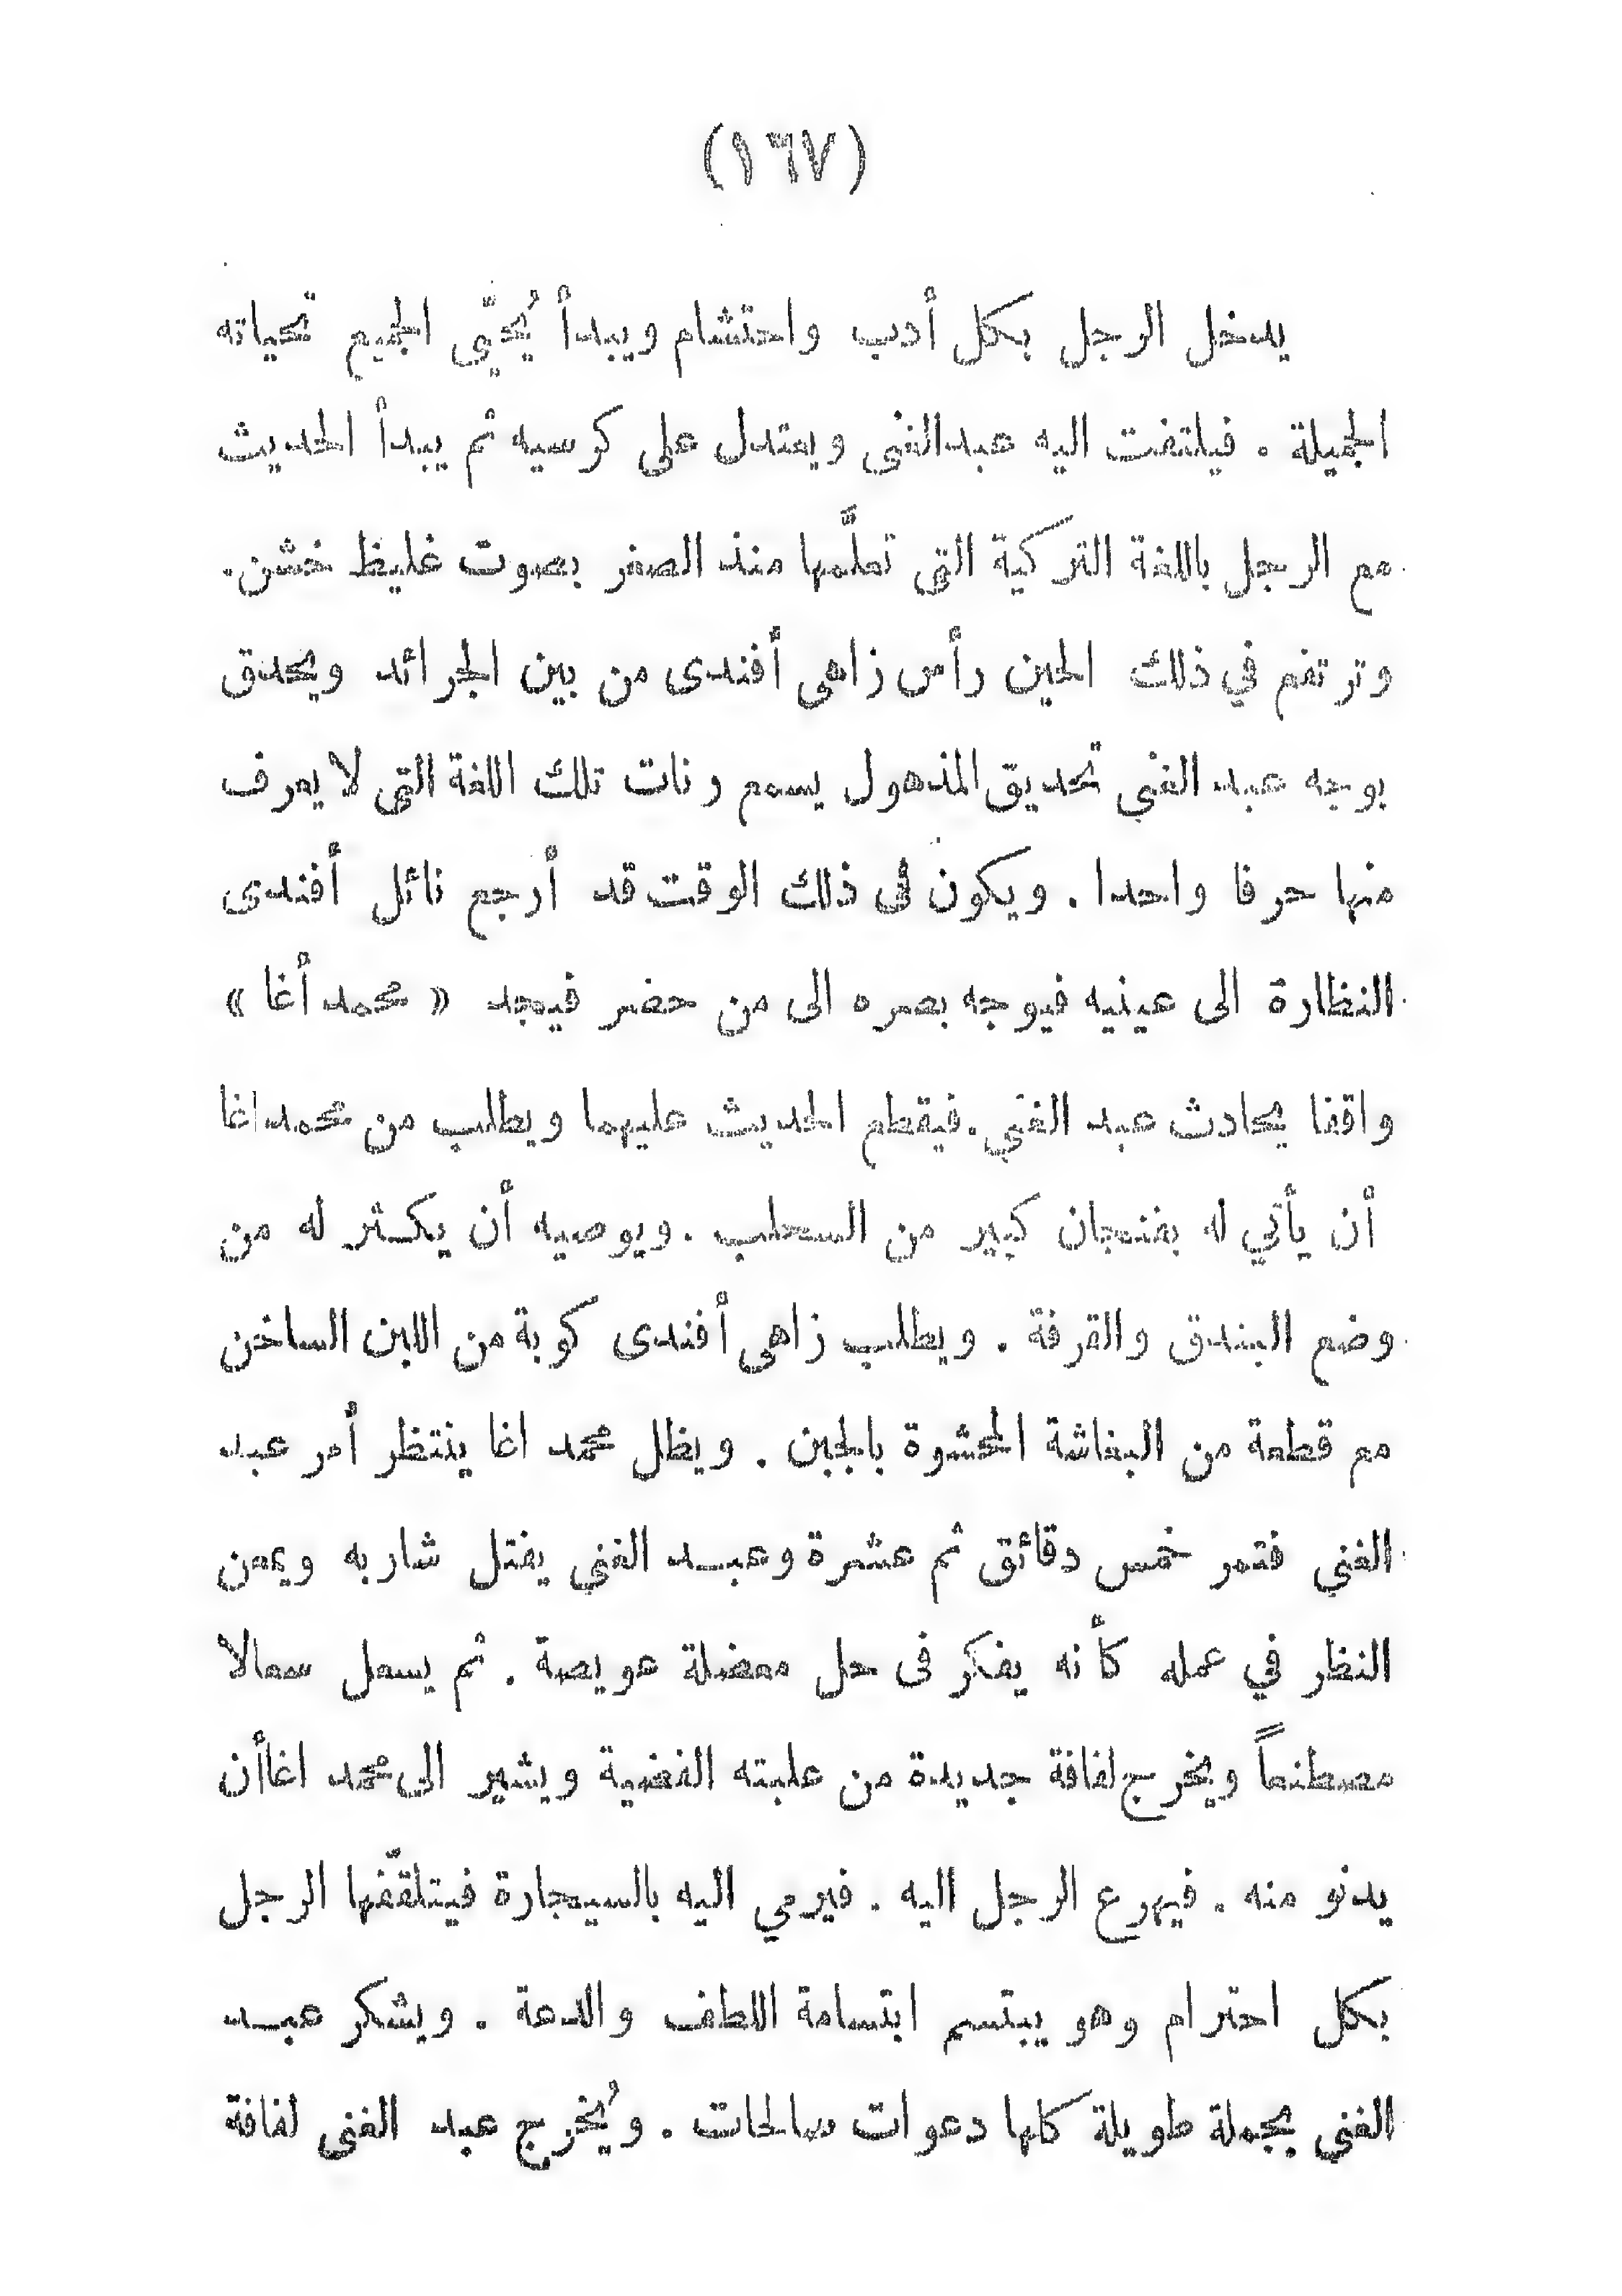 (١٦٧)
يدخل الرجل بكل أدب واحتشام ويبدأ يُحيّى الجميع تحياته
الجميلة . فيلتفت اليه عبدالغنى ويعتدل على كرسيه ثم يبدأ الحديث
مع الرجل باللغة التركية التى تعلَّمها منذ الصغر بصوت غليظ خشن.
وترتفع في ذلك الحين رأس زاهى أفندى من بين الجرائد ويحدق
بوجه عبد الغني تحديق المذهول يسمع رنات تلك اللغة التى لا يعرف
منها حرفا واحدا . ويكون فى ذلك الوقت قد أرجع نائل أفندى
النظارة الى عينيه فيوجه بصره الى من حضر فيجد « محمد أغا »
واقفا يحادث عبد الغني .فيقطع الحديث عليهما ويطلب من محمد اغا
أن يأتي له بفنجان كبير من السحلب .ويوصيه أن يكثر له من
وضع البندق والقرفة . ويطلب زاهى أفندى كوبة من اللبن الساخن
مع قطعة من البغاشة المحشوة بالجبن . ويظل محمد اغا ينتظر أمر عبد
الغني فتمر خمس دقائق ثم عشرة وعبد الغني يفتل شاربه ويمعن
النظر في عمله كأنه يفكر فى حل معضلة عويصة . ثم يسعل سعالا
مصطنعاً ويخرج لفافة جديدة من علبته الفضية ويشير الى محمد اغا أن
يدنو منه . فيهرع الرجل اليه . فيرمي اليه بالسيجارة فيتلقّفها الرجل
بكل احترام وهو يبتسم ابتسامة اللطف والدعة . ويشكر عبد
الغني بجملة طويلة كلها دعوات صالحات . ويُخرج عبد الغنى لفافة